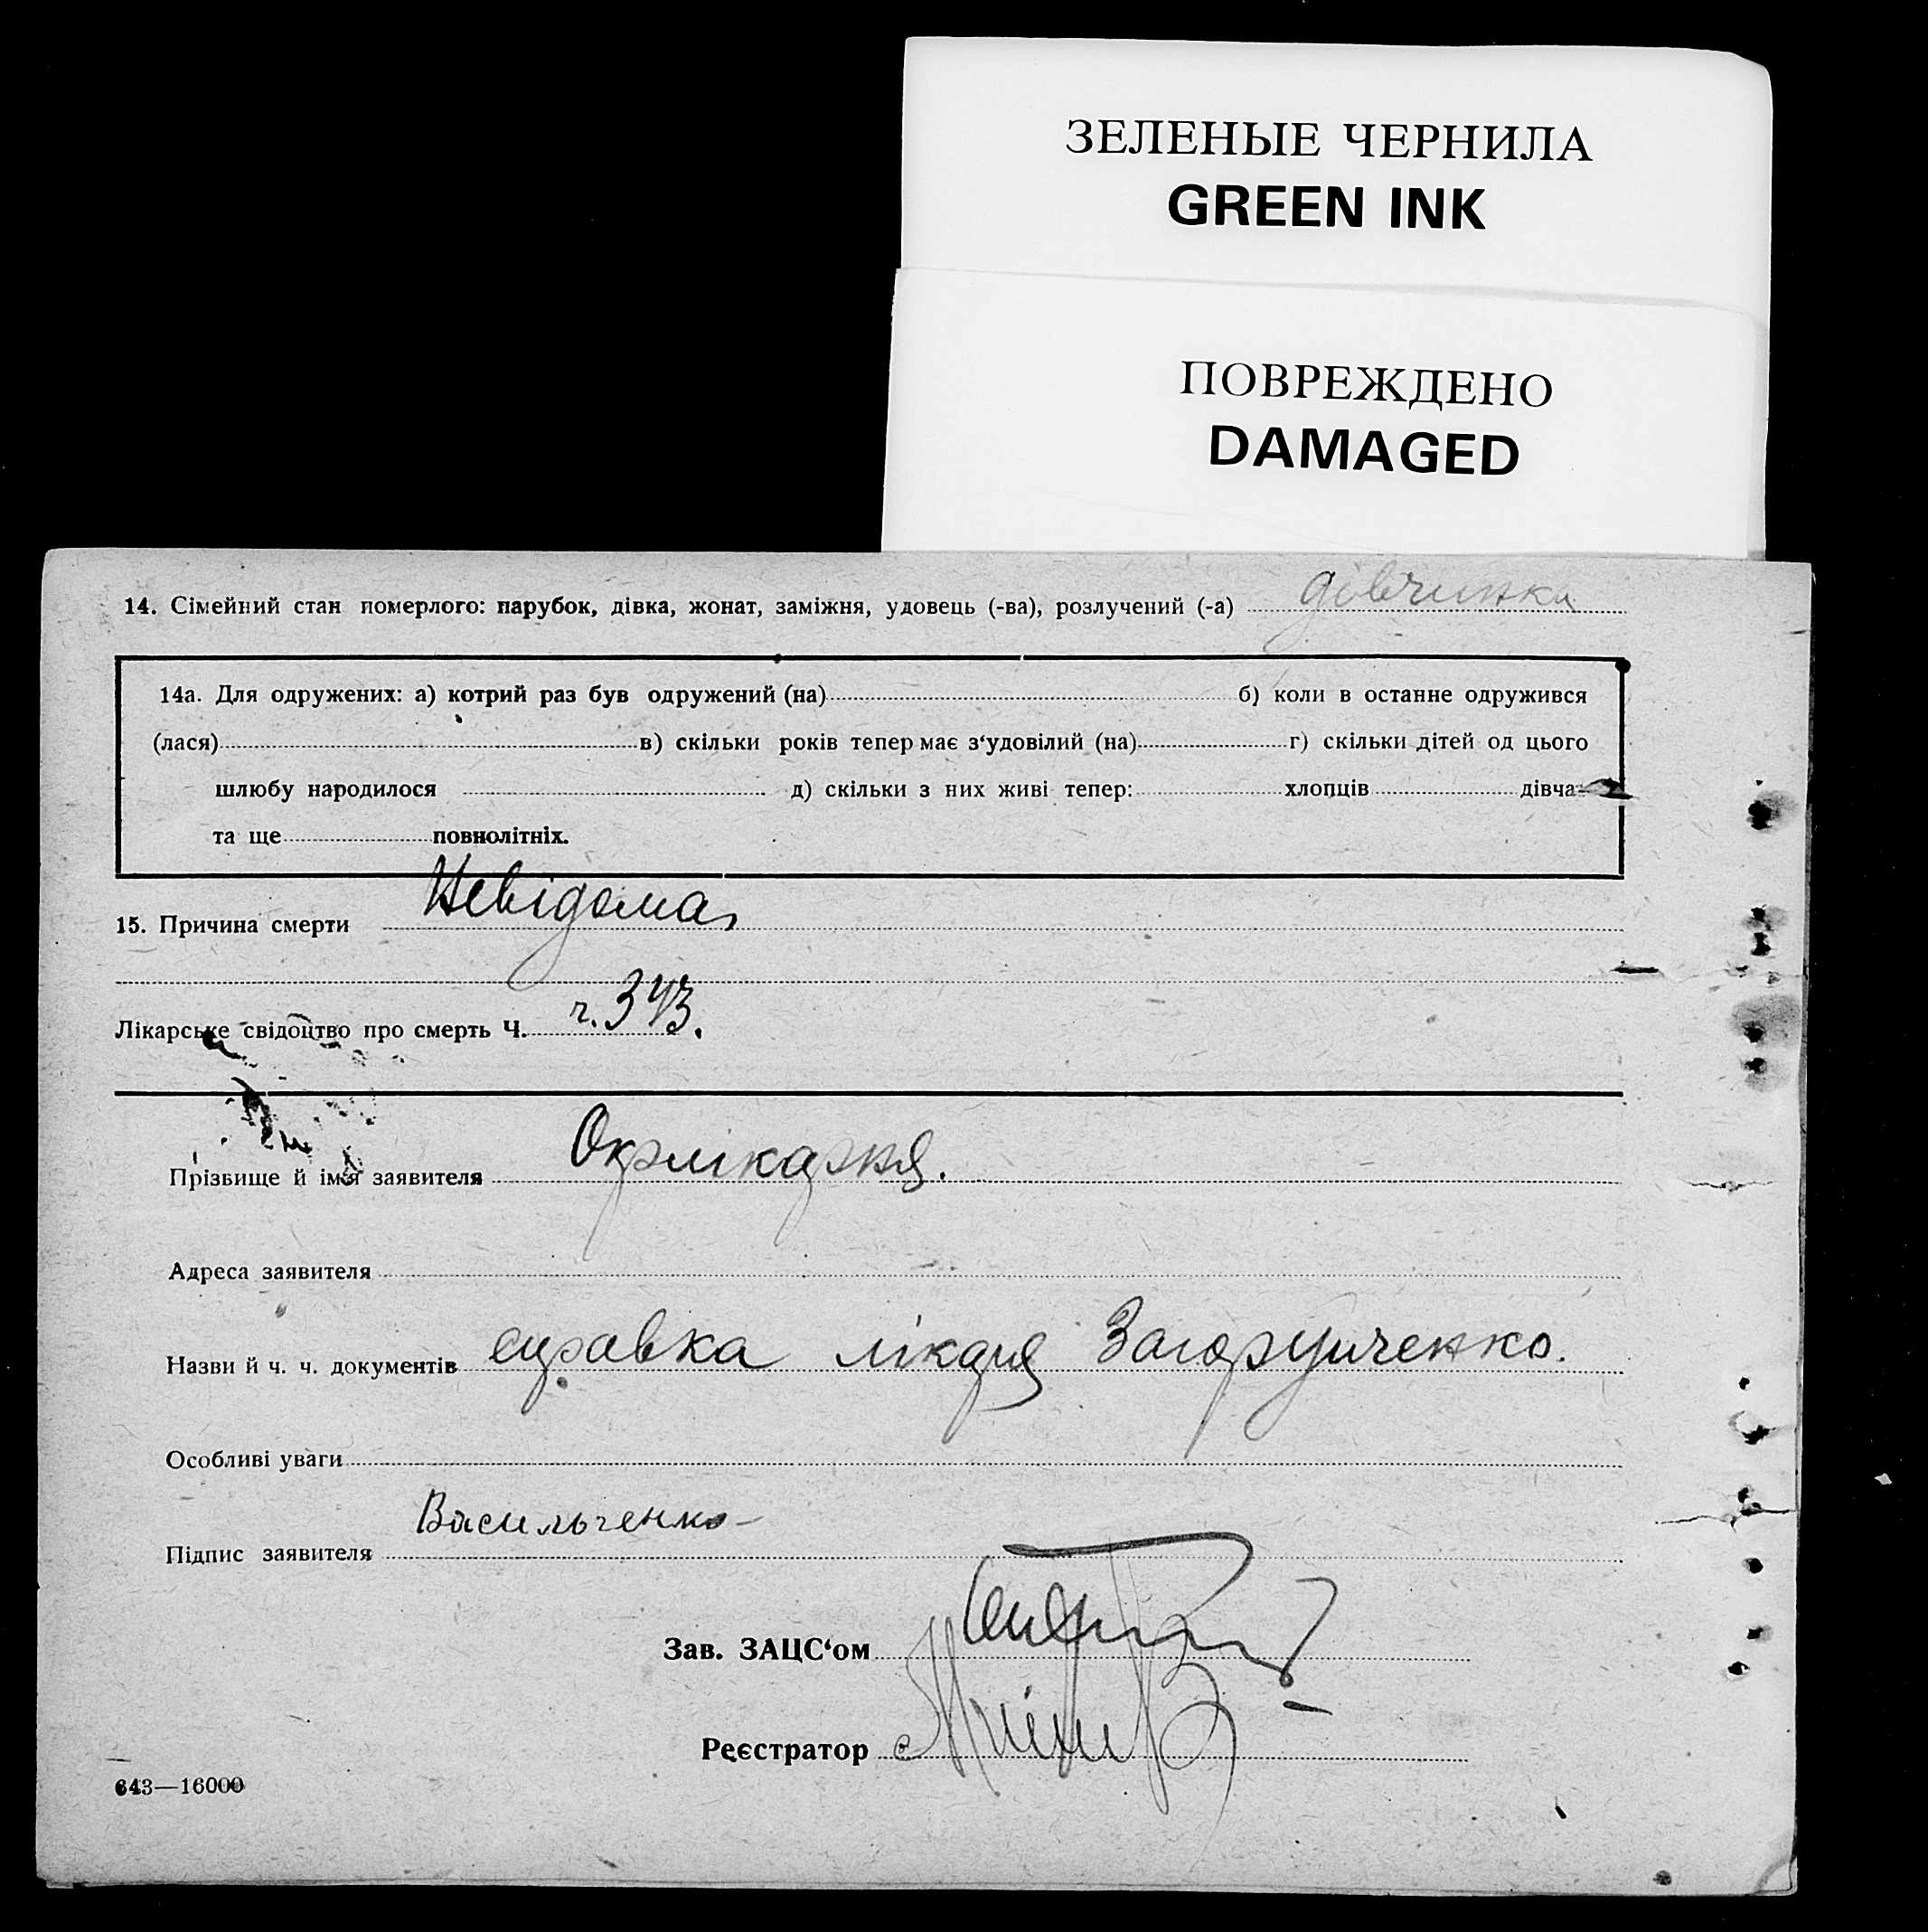 ЗЕЛЕНЫЕ ЧЕРНИЛА
GREEN INK
ПОВРЕЖДЕНО
DAMAGED
14. Сімейний стан померлого: парубок, дівка, жонат, заміжня, удовець (-ва), розлучений (-а) дівчинка
14а. Для одружених: а) котрий раз був одружений (на) б) коли в останне одружився
(лася) в) скільки років тепер має з‘удовілий (на) г) скільки дітей од цього
шлюбу народилося д) скільки з них живі тепер: хлопців дівча-
та ще повнолітніх.
15. Причина смерти Невідома
Лікарське свідоцтво про смерть Ч. ч. 343.
Прізвище й імя заявителя Окрлікарня.
Адреса заявителя
Назви й ч. ч. документів справка лікаря
Особливі уваги
Підпис заявителя Васильченко
Зав. ЗАЦС‘ом
Реєстратор
643—16000